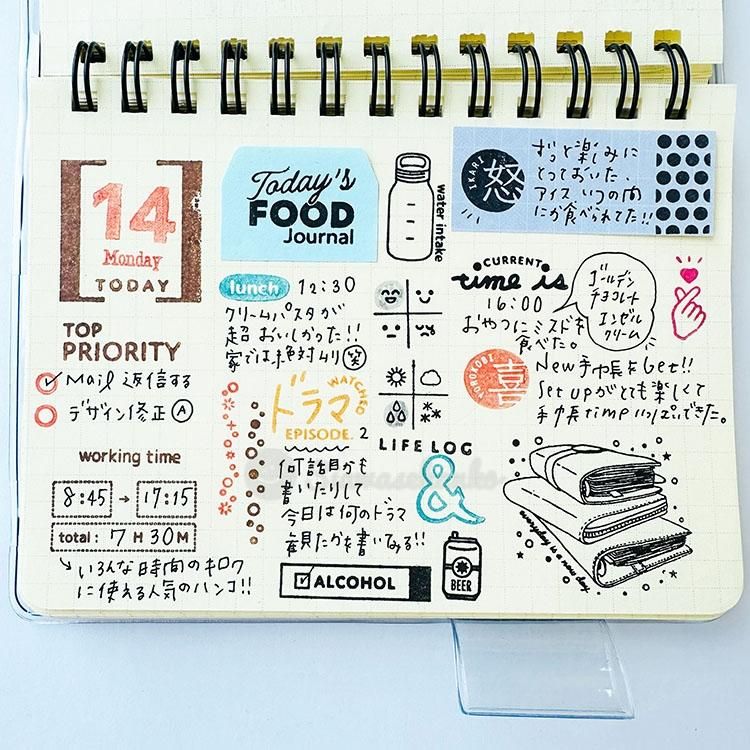 14
Monday
TODAY
TOP
PRIORITY
Mail 返信する
デザイン修正 A
working time
8:45 → 17:15
total: 7 H 30 M
いろんな時間のキロク
に使える人気のハンコ!!
Today's
FOOD
Journal
water intake
lunch 12:30
クリームパスタが
超おいしかった!!
家では絶対ムリ 笑
ドラマ
WATCHED
EPISODE. 2
何話目かも
書いたりして
今日は何のドラマ
観たかを書いてみる!!
ALCOHOL
BEER
LIFE LOG
&
IKARI
怒
ずっと楽しみに
とっておいた、
アイス いつの間
にか食べられてた!!
CURRENT
time is
16:00
おやつにミスドを
食べた。
ゴールデン
チョコレート
エンゼル
クリーム
YOROKOBI
喜
New手帳をGet!!
Set upがとても楽しくて
手帳timeいっぱいできた。
everyday is a new day.